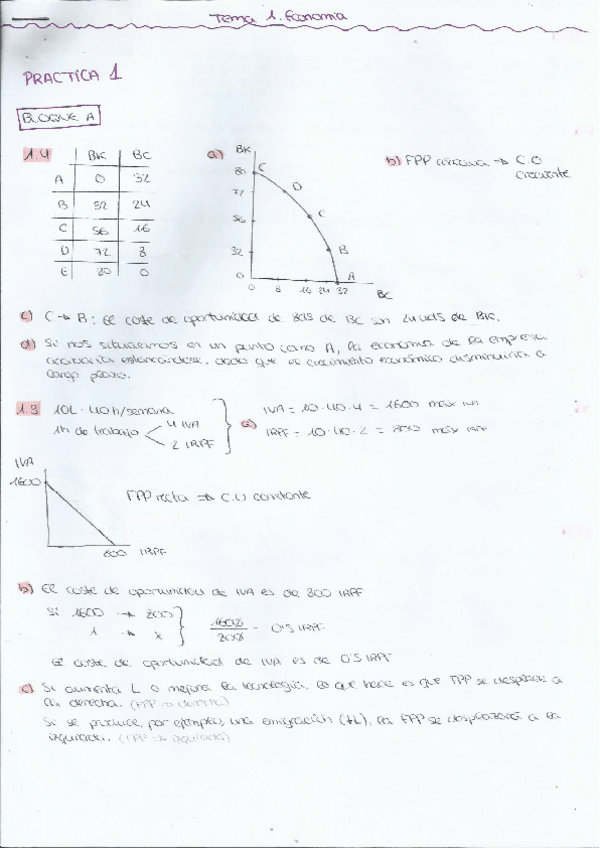 Tema 1. Economía
PRACTICA 1
BLOQUE A
1.4 BK BC
A 0 32
B 32 24
C 56 16
D 72 8
E 80 0
a) BK
80 C
72 D
56 C
32 B
0 A
0 8 16 24 32 BC
b) FPP cóncava → C.O
creciente
c) C → B: El coste de oportunidad de 8uds de BC son 24 uds de BK.
d) Si nos situaramos en un punto como A, la economía de la empresa
acabaría estancándose, dado que el crecimiento económico disminuiría a
largo plazo.
1.3 10L · 40h/semana
1h de trabajo 4 IVA
2 IRPF
a) IVA = 10·40·4 = 1600 máx IVA
IRPF = 10·40·2 = 800 máx IRPF
IVA
1600
800 IRPF
FPP recta ⇒ C.O constante
b) El coste de oportunidad de IVA es de 800 IRPF
Si 1600 → 800
1 → x
1600 / 800 = 0'5 IRPF
El coste de oportunidad de IVA es de 0'5 IRPF
c) Si aumenta L o mejora la tecnología, lo que hace es que FPP se desplace a
la derecha. (FPP → derecha)
Si se produce, por ejemplo, una emigración (↓L), la FPP se desplazará a la
izquierda. (FPP → izquierda)